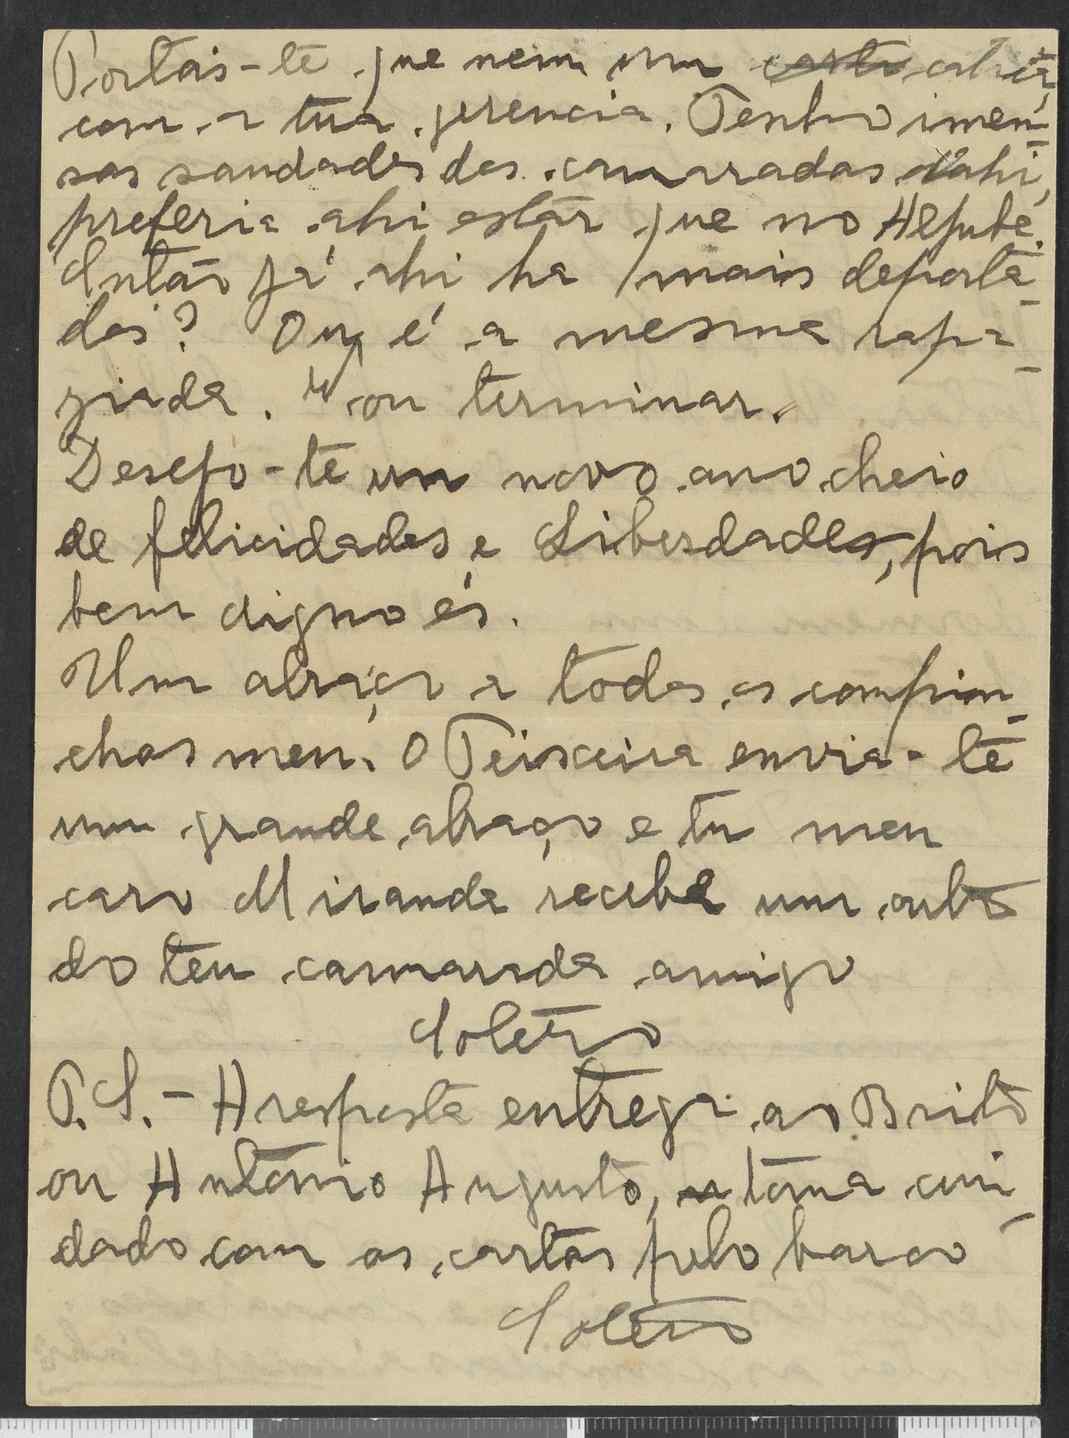 Portas-te que nem um
com a tua gerencia. Tenho imen-
sas saudades dos camarradas d'ahi,
preferia ahi estar que no Aljube.
Então já ahi ha mais deporta-
dos? Ou é a mesma rapa-
ziada. Vou terminar.
Desejo-te um novo ano cheio
de felicidades e Liberdades, pois
bem digno és.
Um abraço a todos os compin-
chas meu. O Teixeira envia-te
um grande abraço e tu meu
caro Miranda recebe um outro
do teu camarada amigo
Sotero
P.S. - A resposta entrega ao Brito
ou António Augusto, toma cui-
dado com as cartas pelo barco
Sotero